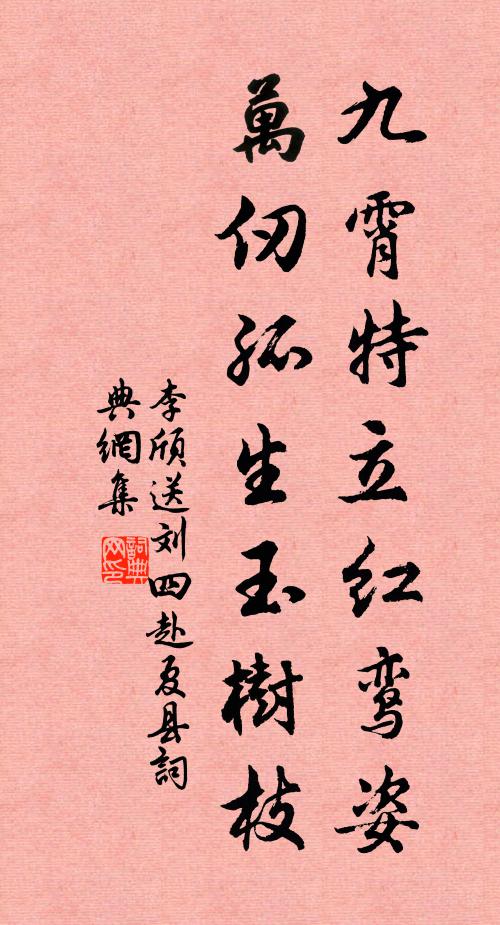 九霄特立红鸾姿
萬仞孤生玉樹枝
李頎送刘四赴夏县詞
典網集
詞典
网印